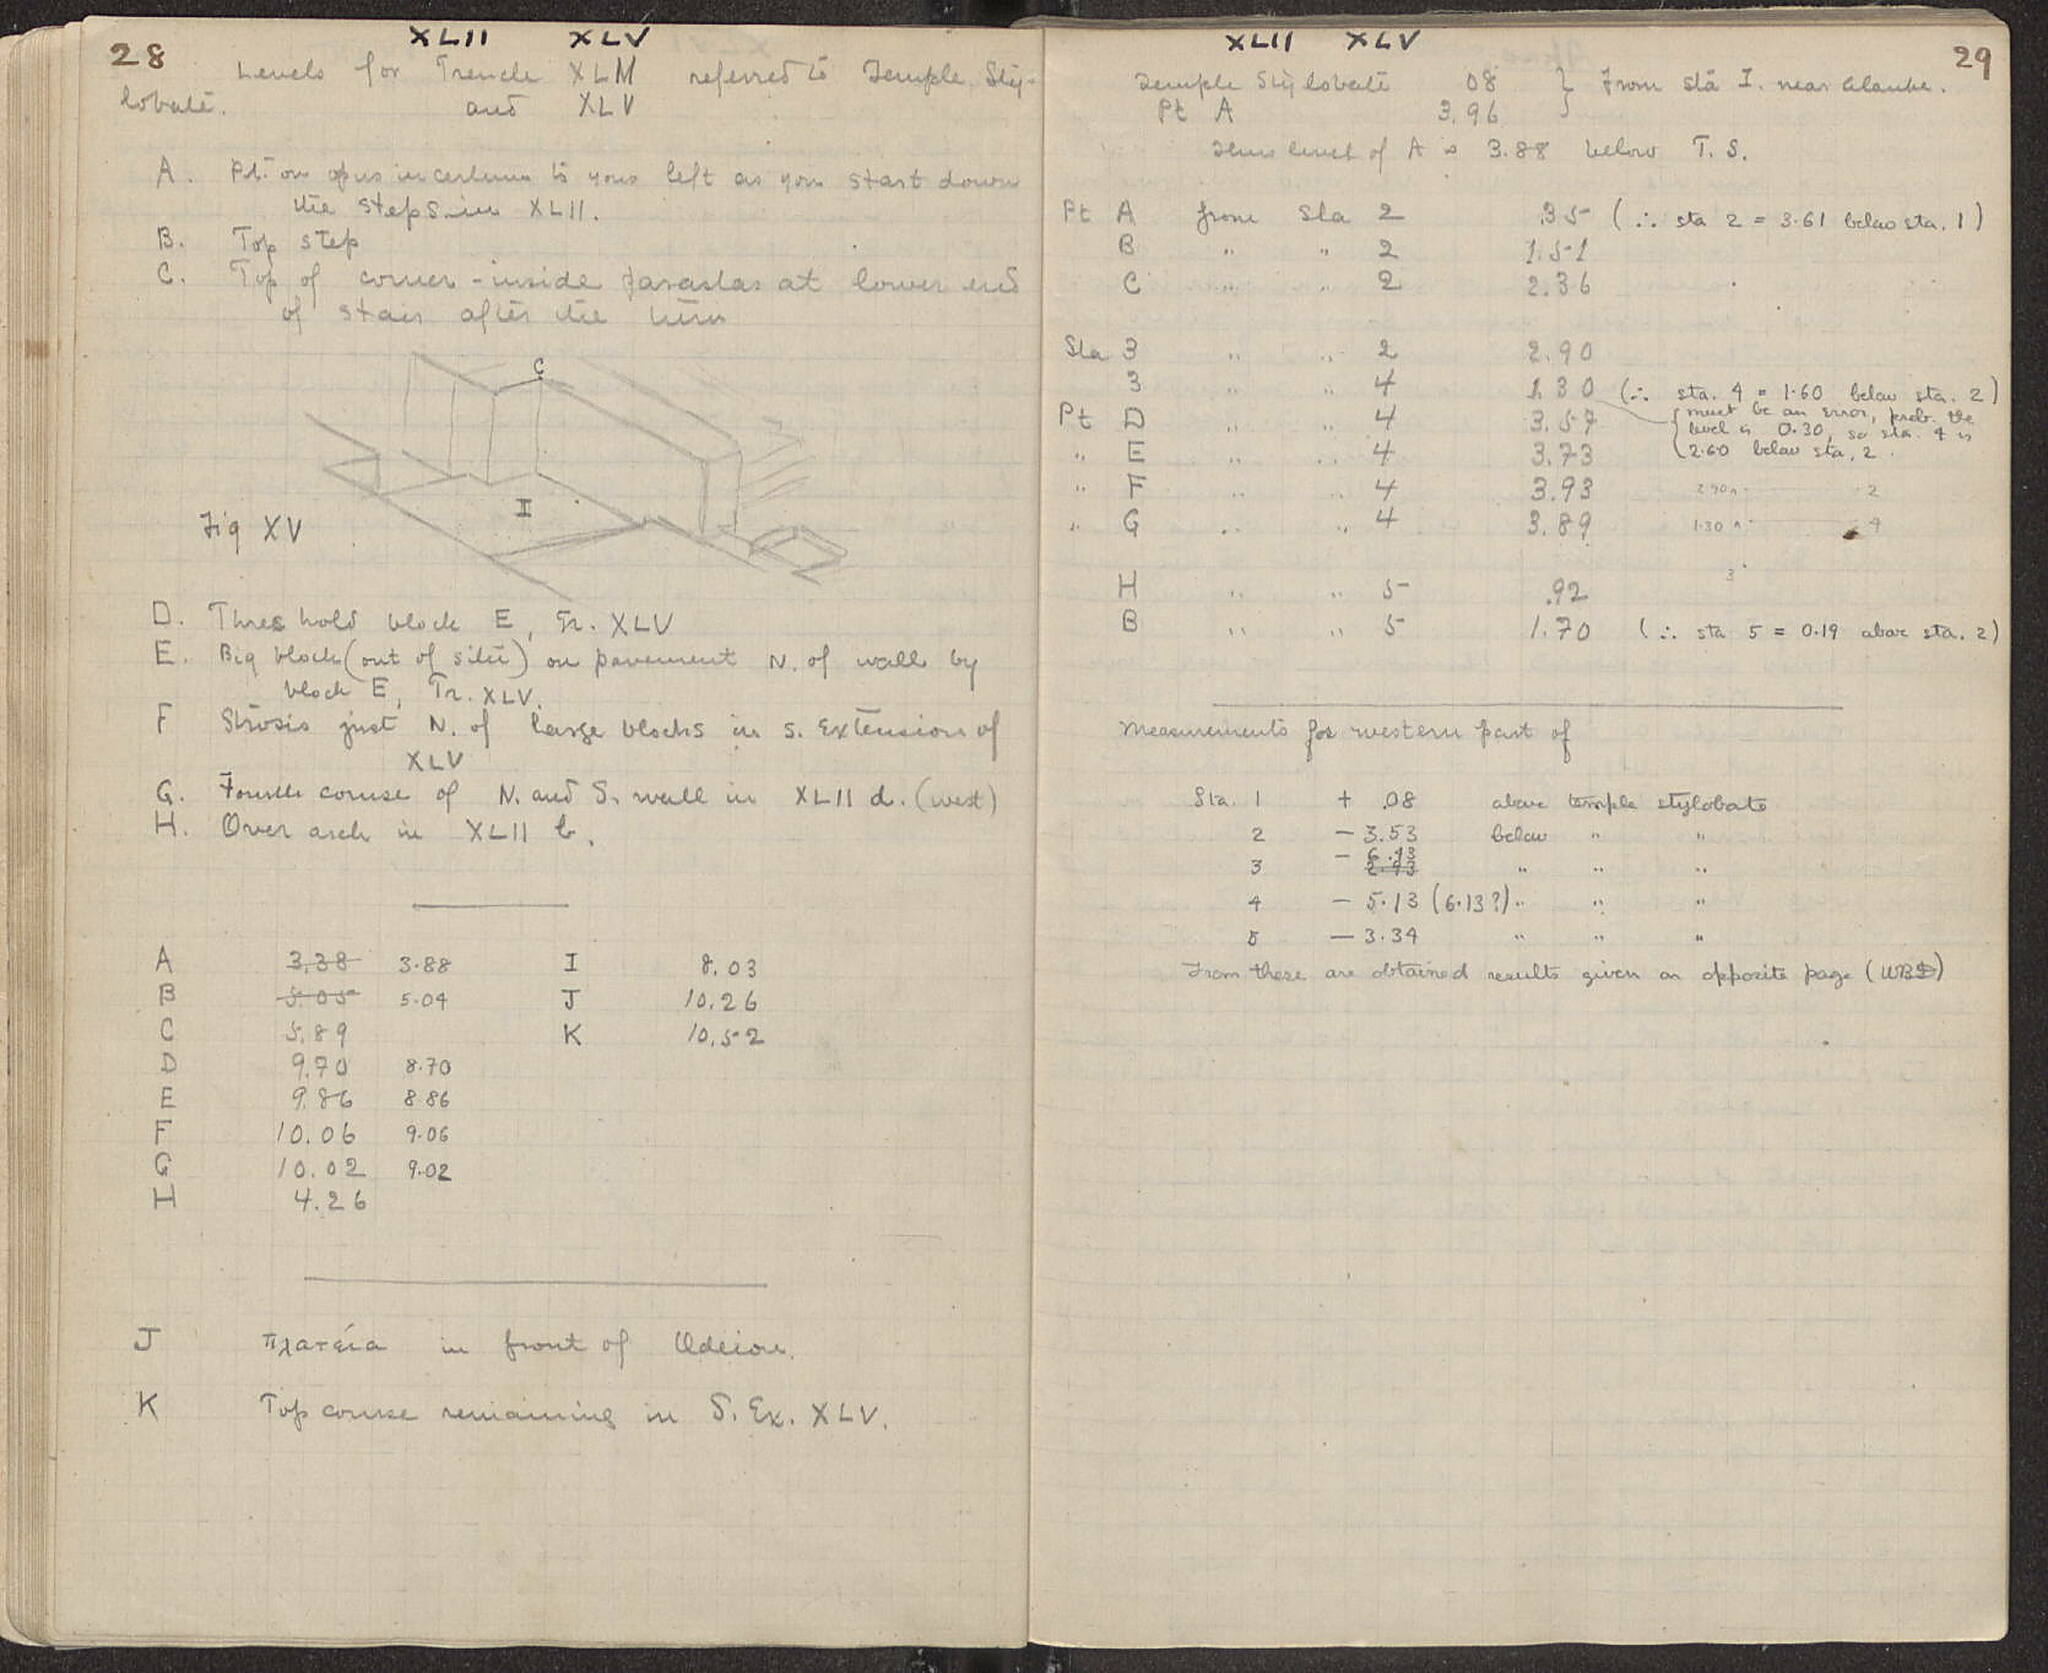 28
XLII XLV
Levels for Trench XLII referred to Temple Sty-
lobate. and XLV
A. Pt. on opus incertum to your left as you start down
the steps in XLII.
B. Top step
C. Top of corner - inside parastas at lower end
of stair after the turn
C
II
Fig XV
D. Threshold block E, Tr. XLV
E. Big block (out of situ) on pavement N. of wall by
block E, Tr. XLV.
F Strosis just N. of large blocks in S. Extension of
XLV
G. Fourth course of N. and S. wall in XLII d. (west)
H. Over arch in XLII b.
A 3.38 3.88 I 8.03
B 5.05 5.04 J 10.26
C 5.89 K 10.52
D 9.70 8.70
E 9.86 8.86
F 10.06 9.06
G 10.02 9.02
H 4.26
J πλατεία in front of Odeion.
K Top course remaining in S. Ex. XLV.
29
XLII XLV
Temple Stylobate 08 } From Sta I. near Glauke.
Pt A 3.96
Thus level of A is 3.88 below T. S.
Pt A from Sta 2 .35 (∴ sta 2 = 3.61 below sta. 1)
B " " 2 1.51
C " " 2 2.36
Sta 3 " " 2 2.90
3 " " 4 1.30 (∴ sta. 4 = 1.60 below sta. 2)
must be an error, prob. the
level is 0.30, so sta. 4 is
2.60 below sta. 2.
Pt D " " 4 3.57
" E " " 4 3.73
" F " " 4 3.93 2.90 2
" G " " 4 3.89 1.30 4
3
H " " 5 .92
B " " 5 1.70 (∴ sta 5 = 0.19 above sta. 2)
Measurements for western part of
Sta. 1 + .08 above temple stylobate
2 - 3.53 below " "
3 - 6.43 2.93 " " "
4 - 5.13 (6.13?) " " "
5 - 3.34 " " "
From these are obtained results given on opposite page (WBD)